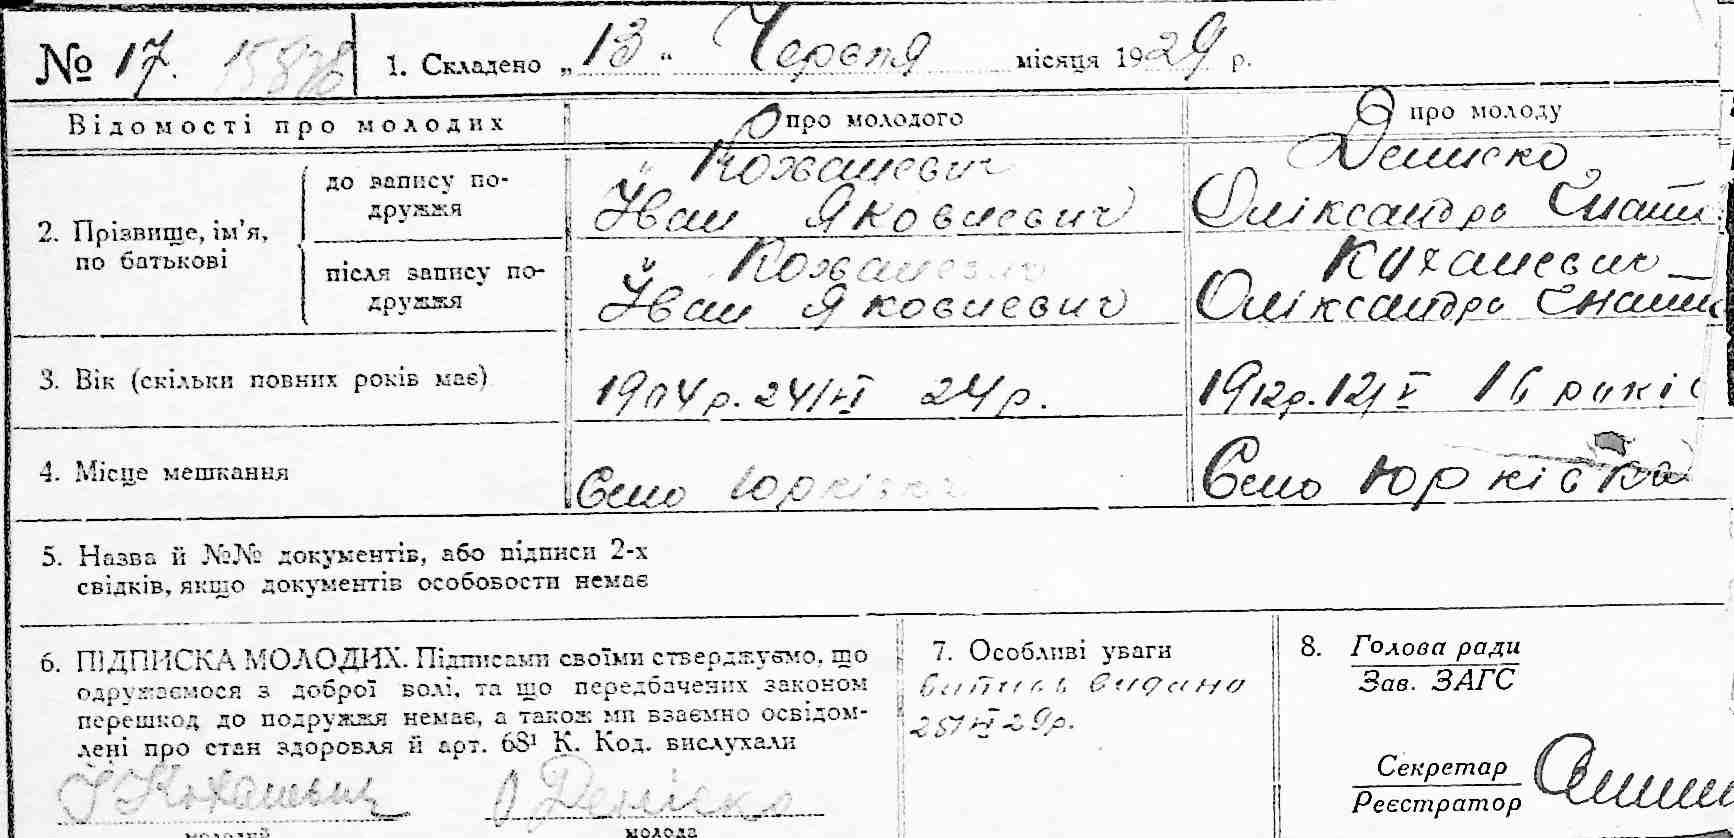 № 17. 15878 1. Складено „ 13 “ Червня місяця 1929 р.
Відомості про молодих про молодого про молоду
2. Прізвище, ім’я, по батькові
до запису подружжя
Коханевич
Іван Яковлевич
Дениско
Оліксандра Гнати
після запису подружжя
Коханевич
Іван Яковлевич
Коханевич
Оліксандра Гнати
3. Вік (скільки повних років має) 1904 р. 24/VI 24 р. 1912р. 12/V 16 років
4. Місце мешкання Село Юрківка Село Юрківка
5. Назва й №№ документів, або підписи 2-х
свідків, якщо документів особовости немає
6. ПІДПИСКА МОЛОДИХ. Підписами своїми стверджуємо, що
одружаємося з доброї волі, та що передбачених законом
перешкод до подружжя немає, а також ми взаємно освідом-
лені про стан здоровля й арт. 68¹ К. Код. вислухали
І Коханевич О Деніско
молодий молода
7. Особливі уваги
витись видано
25/VI 29р.
8. Голова ради
Зав. ЗАГС
Секретар
Реєстратор